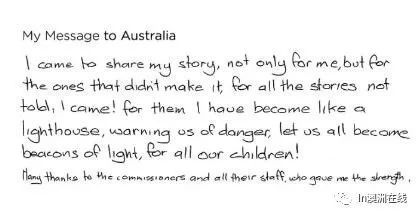 My Message to Australia
I came to share my story, not only for me, but for
the ones that didn't make it, for all the stories not
told, I came! for them I have become like a
lighthouse, warning us of danger, let us all become
beacons of light, for all our children!
Many thanks to the commissioners and all their staff, who gave me the strength.
In澳洲在线